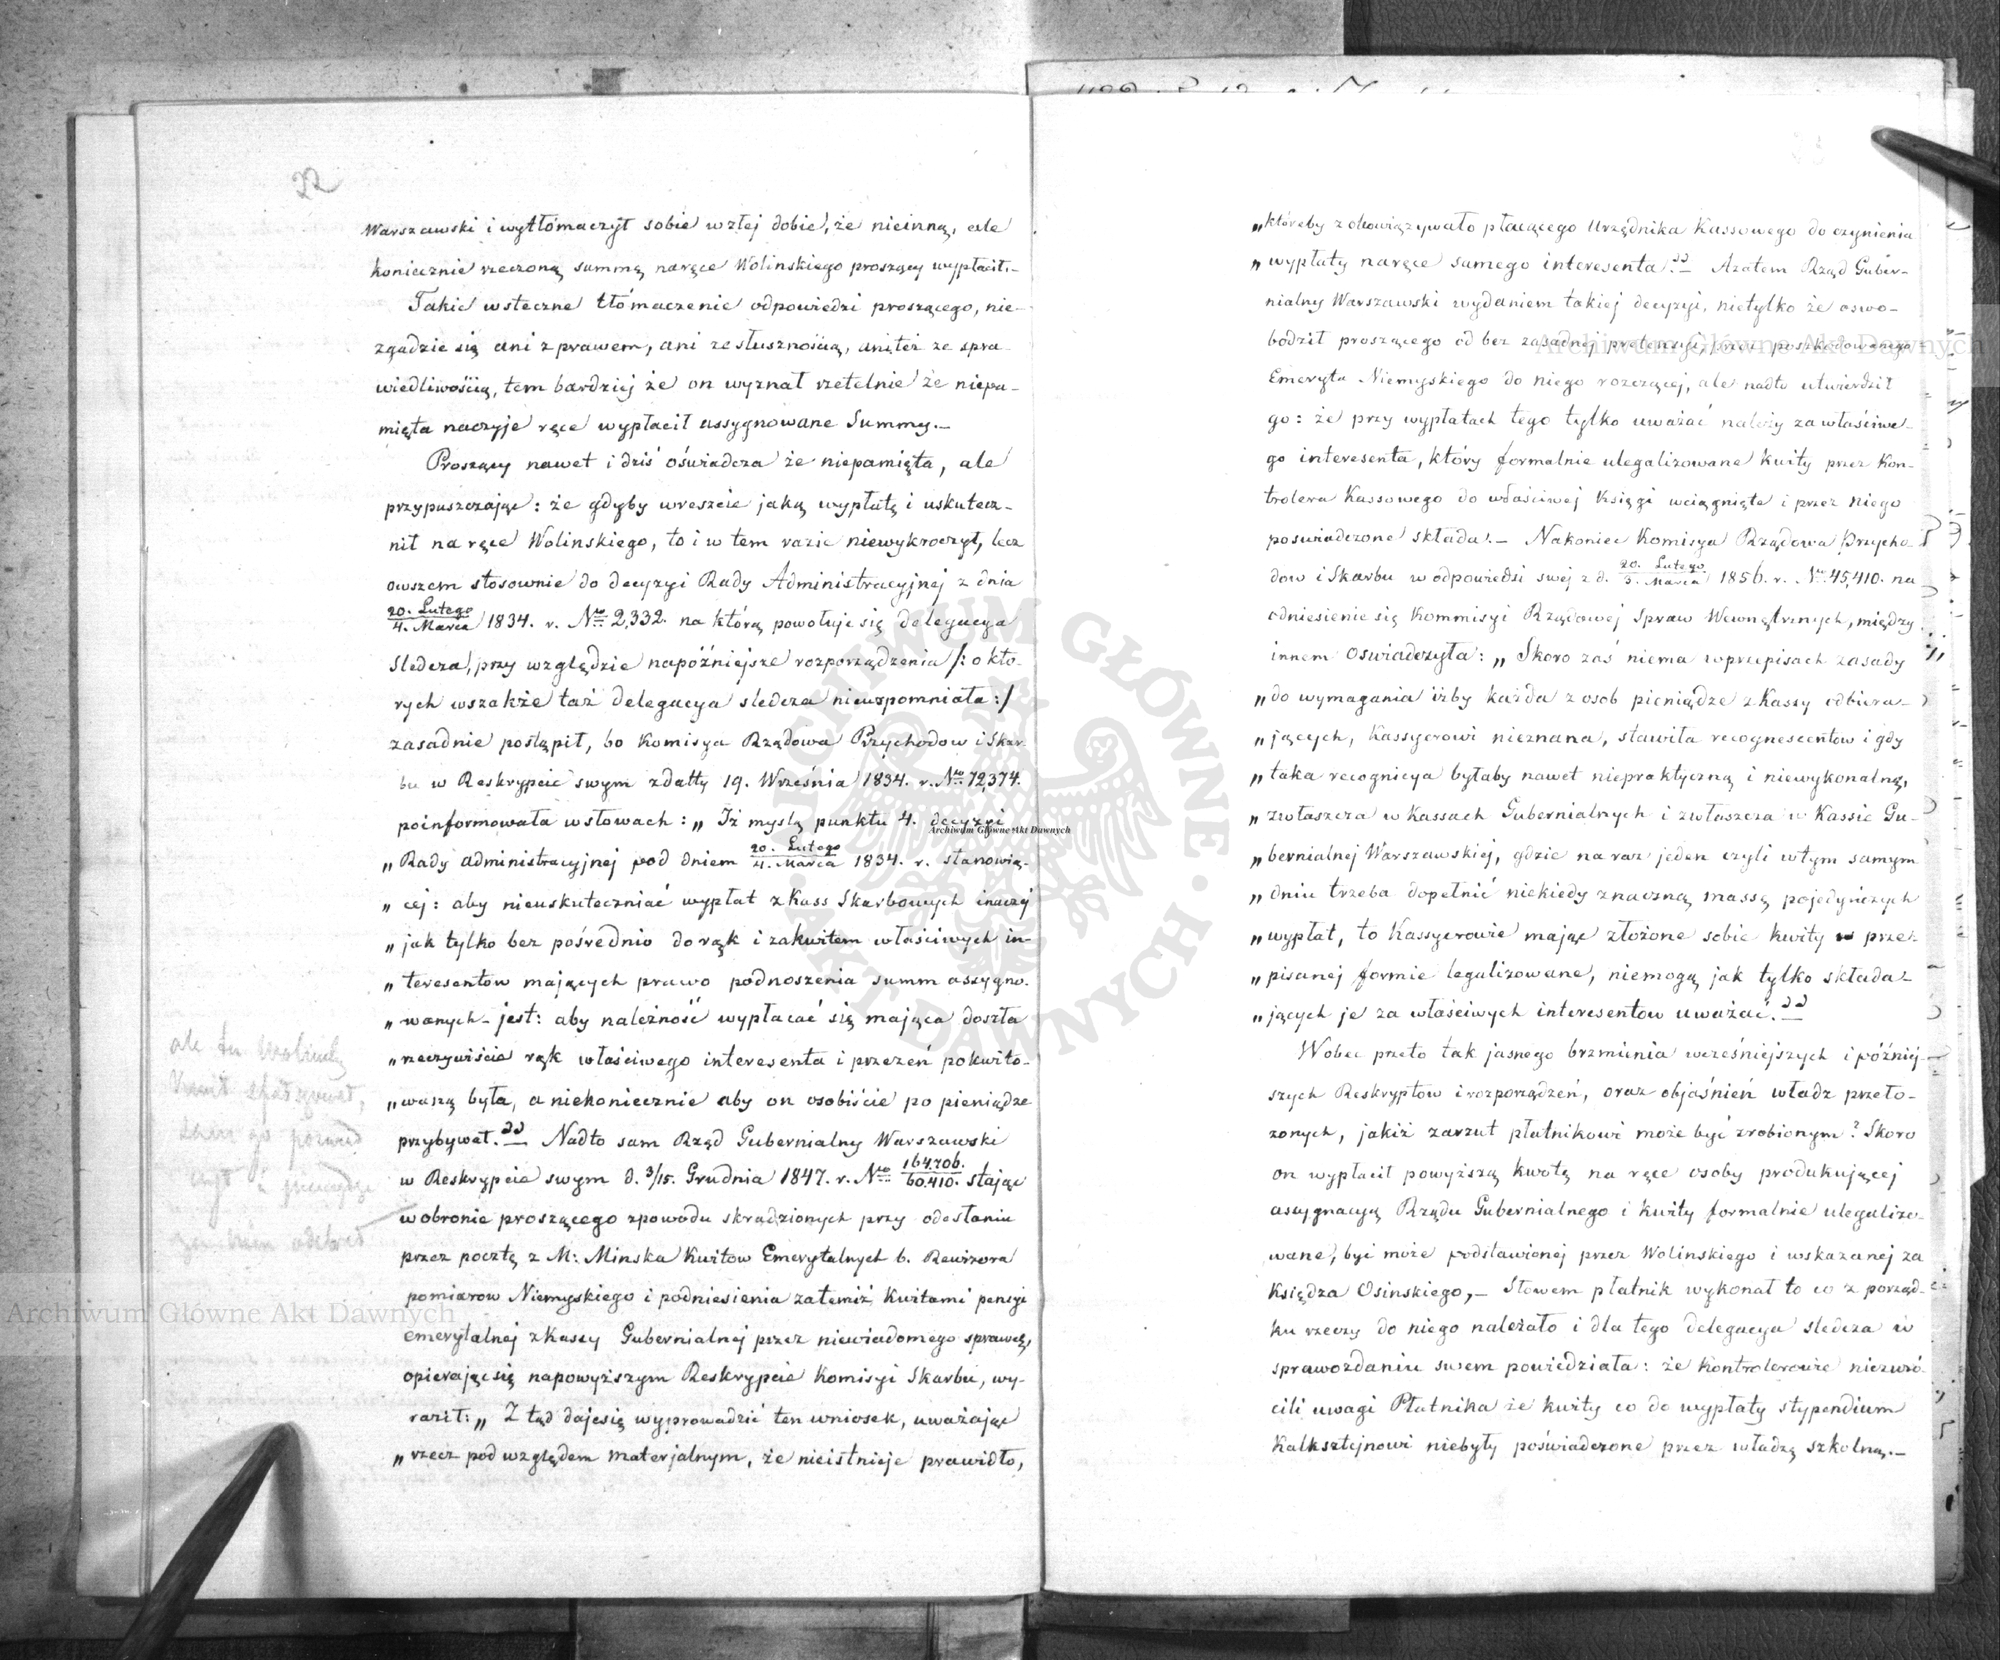 22
Warszawski i wytłómaczył sobie w złej dobie, że nieinną, ale
koniecznie rzeczoną summę naręce Wolinskiego proszący wypłacił.-
Takie wsteczne tłómaczenie odpowiedzi proszącego, nie-
zgadzie się ani z prawem, ani ze słusznością, aniteż ze spra-
wiedliwością, tem bardziej że on wyznał rzetelnie że niepa-
mięta naczyje ręce wypłacił assygnowane Summy.-
Proszący nawet i dziś oświadcza że niepamięta, ale
przypuszczając: że gdyby wreszcie jaką wypłatę i uskutecz-
nił na ręce Wolinskiego, to i w tem razie niewykroczył, lecz
owszem stosownie do decyzyi Rady Administracyjnej z dnia
20. Lutego/4. Marca 1834. r. No 2,332. na którą powołuje się delegacya
Śledcza, przy względzie napóźniejsze rozporządzenia /: o któ-
rych wszakże taż delegacya śledcza niewspomniała :/
zasadnie postąpił, bo Komisya Rządowa Przychodow i Skar-
bu w Reskrypcie swym zdatty 19. Września 1834. r. No 72,374.
poinformowała wsłowach: „ Iż myślą punktu 4. decyzyi
„ Rady administracyjnej pod dniem 20. Lutego/4. Marca 1834. r. stanowią-
„ cej: aby nieuskuteczniać wypłat z Kass Skarbowych inaczej
„ jak tylko bez pośrednio do rąk i zakwitem właściwych in-
„ teresentów mających prawo podnoszenia summ assygno-
„ wanych - jest: aby należność wypłacać się mająca doszła
„ rzeczywiście rąk właściwego interesenta i przezeń pokwito-
„ waną była, a niekoniecznie aby on osobiście po pieniądze
przybywał." Nadto sam Rząd Gubernialny Warszawski
w Reskrypcie swym d. 3/15. Grudnia 1847. r. No 164,706./60,410. stając
w obronie proszącego zpowodu skradzionych przy odesłaniu
przez pocztę z M: Minska Kwitow Emerytalnych b. Rewizora
pomiarow Niemyskiego i podniesienia zatemiż kwitami pensyi
emerytalnej z Kassy Gubernialnej przez niewiadomego sprawcę,
opierając się napowyższym Reskrypcie Komisyi Skarbu, wy-
raził: „ Z tąd dajesię wyprowadzić ten wniosek, uważając
„ rzecz pod względem materjalnym, że nieistnieje prawidło,
ale tu
i pieniądze
„ któreby zobowiązywało płacącego Urzędnika Kassowego do czynienia
„ wypłaty naręce samego interesenta." Azatem Rząd Guber-
nialny Warszawski wydaniem takiej decyzyi, nietylko że oswo-
bodził proszącego od bez zasadnej pretensyi, przez poszkodowanego
Emeryta Niemyskiego do niego rozczącej, ale nadto utwierdził
go: że przy wypłatach tego tylko uważać należy za właściwe-
go interesenta, który formalnie ulegalizowane kwity przez Kon-
trolera Kassowego do właściwej Księgi wciągnięte i przez niego
poswiadczone składa.- Nakoniec Komisya Rządowa Przycho-
dow i Skarbu w odpowiedzi swej z d. 20. Lutego/3. Marca 1856. r. No 45,410. na
odniesienie się Kommisyi Rządowej Spraw Wewnętrznych, między
innem oswiadczyła: „ Skoro zaś niema wprzepisach zasady
„ do wymagania iżby każda z osob pieniądze z Kassy odbiera-
„ jących, Kassyerowi nieznana, stawiła recognescentow i gdy
„ taka recognicya byłaby nawet niepraktyczną i niewykonalną,
„ zwłaszcza w Kassach Gubernialnych i zwłaszcza w Kassie Gu-
„ bernialnej Warszawskiej, gdzie na raz jeden czyli wtym samym
„ dniu trzeba dopełnić niekiedy znaczną massę pojedyńczych
„ wypłat, to Kassyerowie mając złożone sobie kwity w prze-
„ pisanej formie legalizowane, niemogą jak tylko składa-
„ jących je za właściwych interesentow uważać."
Wobec przeto tak jasnego brzmienia wcześniejszych i późniéj-
szych Reskryptow i rozporządzeń, oraz objaśnień władz przeło-
żonych, jakiż zarzut płatnikowi może być zrobionym? Skoro
on wypłacił powyższą kwotę na ręce osoby produkującej
assygnacyą Rządu Gubernialnego i kwity formalnie ulegalizo-
wane, być może podstawionej przez Wolinskiego i wskazanej za
Księdza Osinskiego,- Słowem płatnik wykonał to co z porząd-
ku rzeczy do niego należało i dla tego delegacya śledcza w
sprawozdaniu swem powiedziała: że Kontrolerowie niezwró-
cili uwagi Płatnika że kwity co do wypłaty stypendium
Kalksztejnowi niebyły poświadczone przez władzę szkolną.-
Archiwum Główne Akt Dawnych
Archiwum Główne Akt Dawnych
Archiwum Główne Akt Dawnych
ARCHIWUM GŁÓWNE • AKT DAWNYCH •